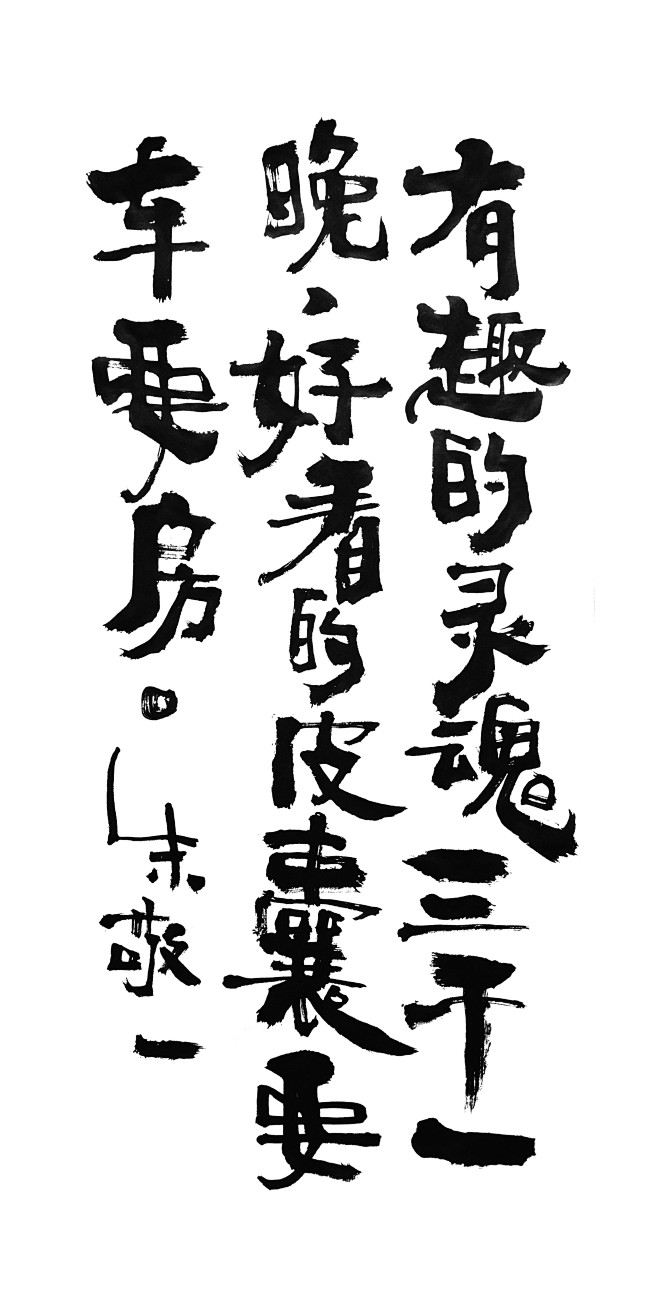 有趣的灵魂三千一
晚、好看的皮囊要
车要房。朱敬一